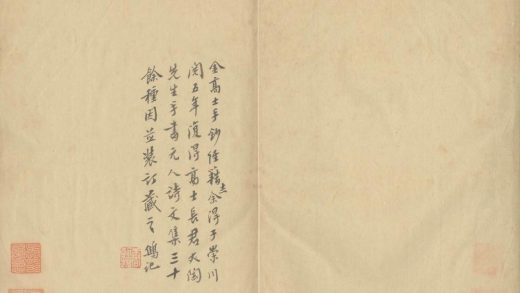 金高士手鈔經籍余得于學川
閱五年復得高士長君亦陶
先生手書元人詩文集三十
餘種因並裝訂藏之記